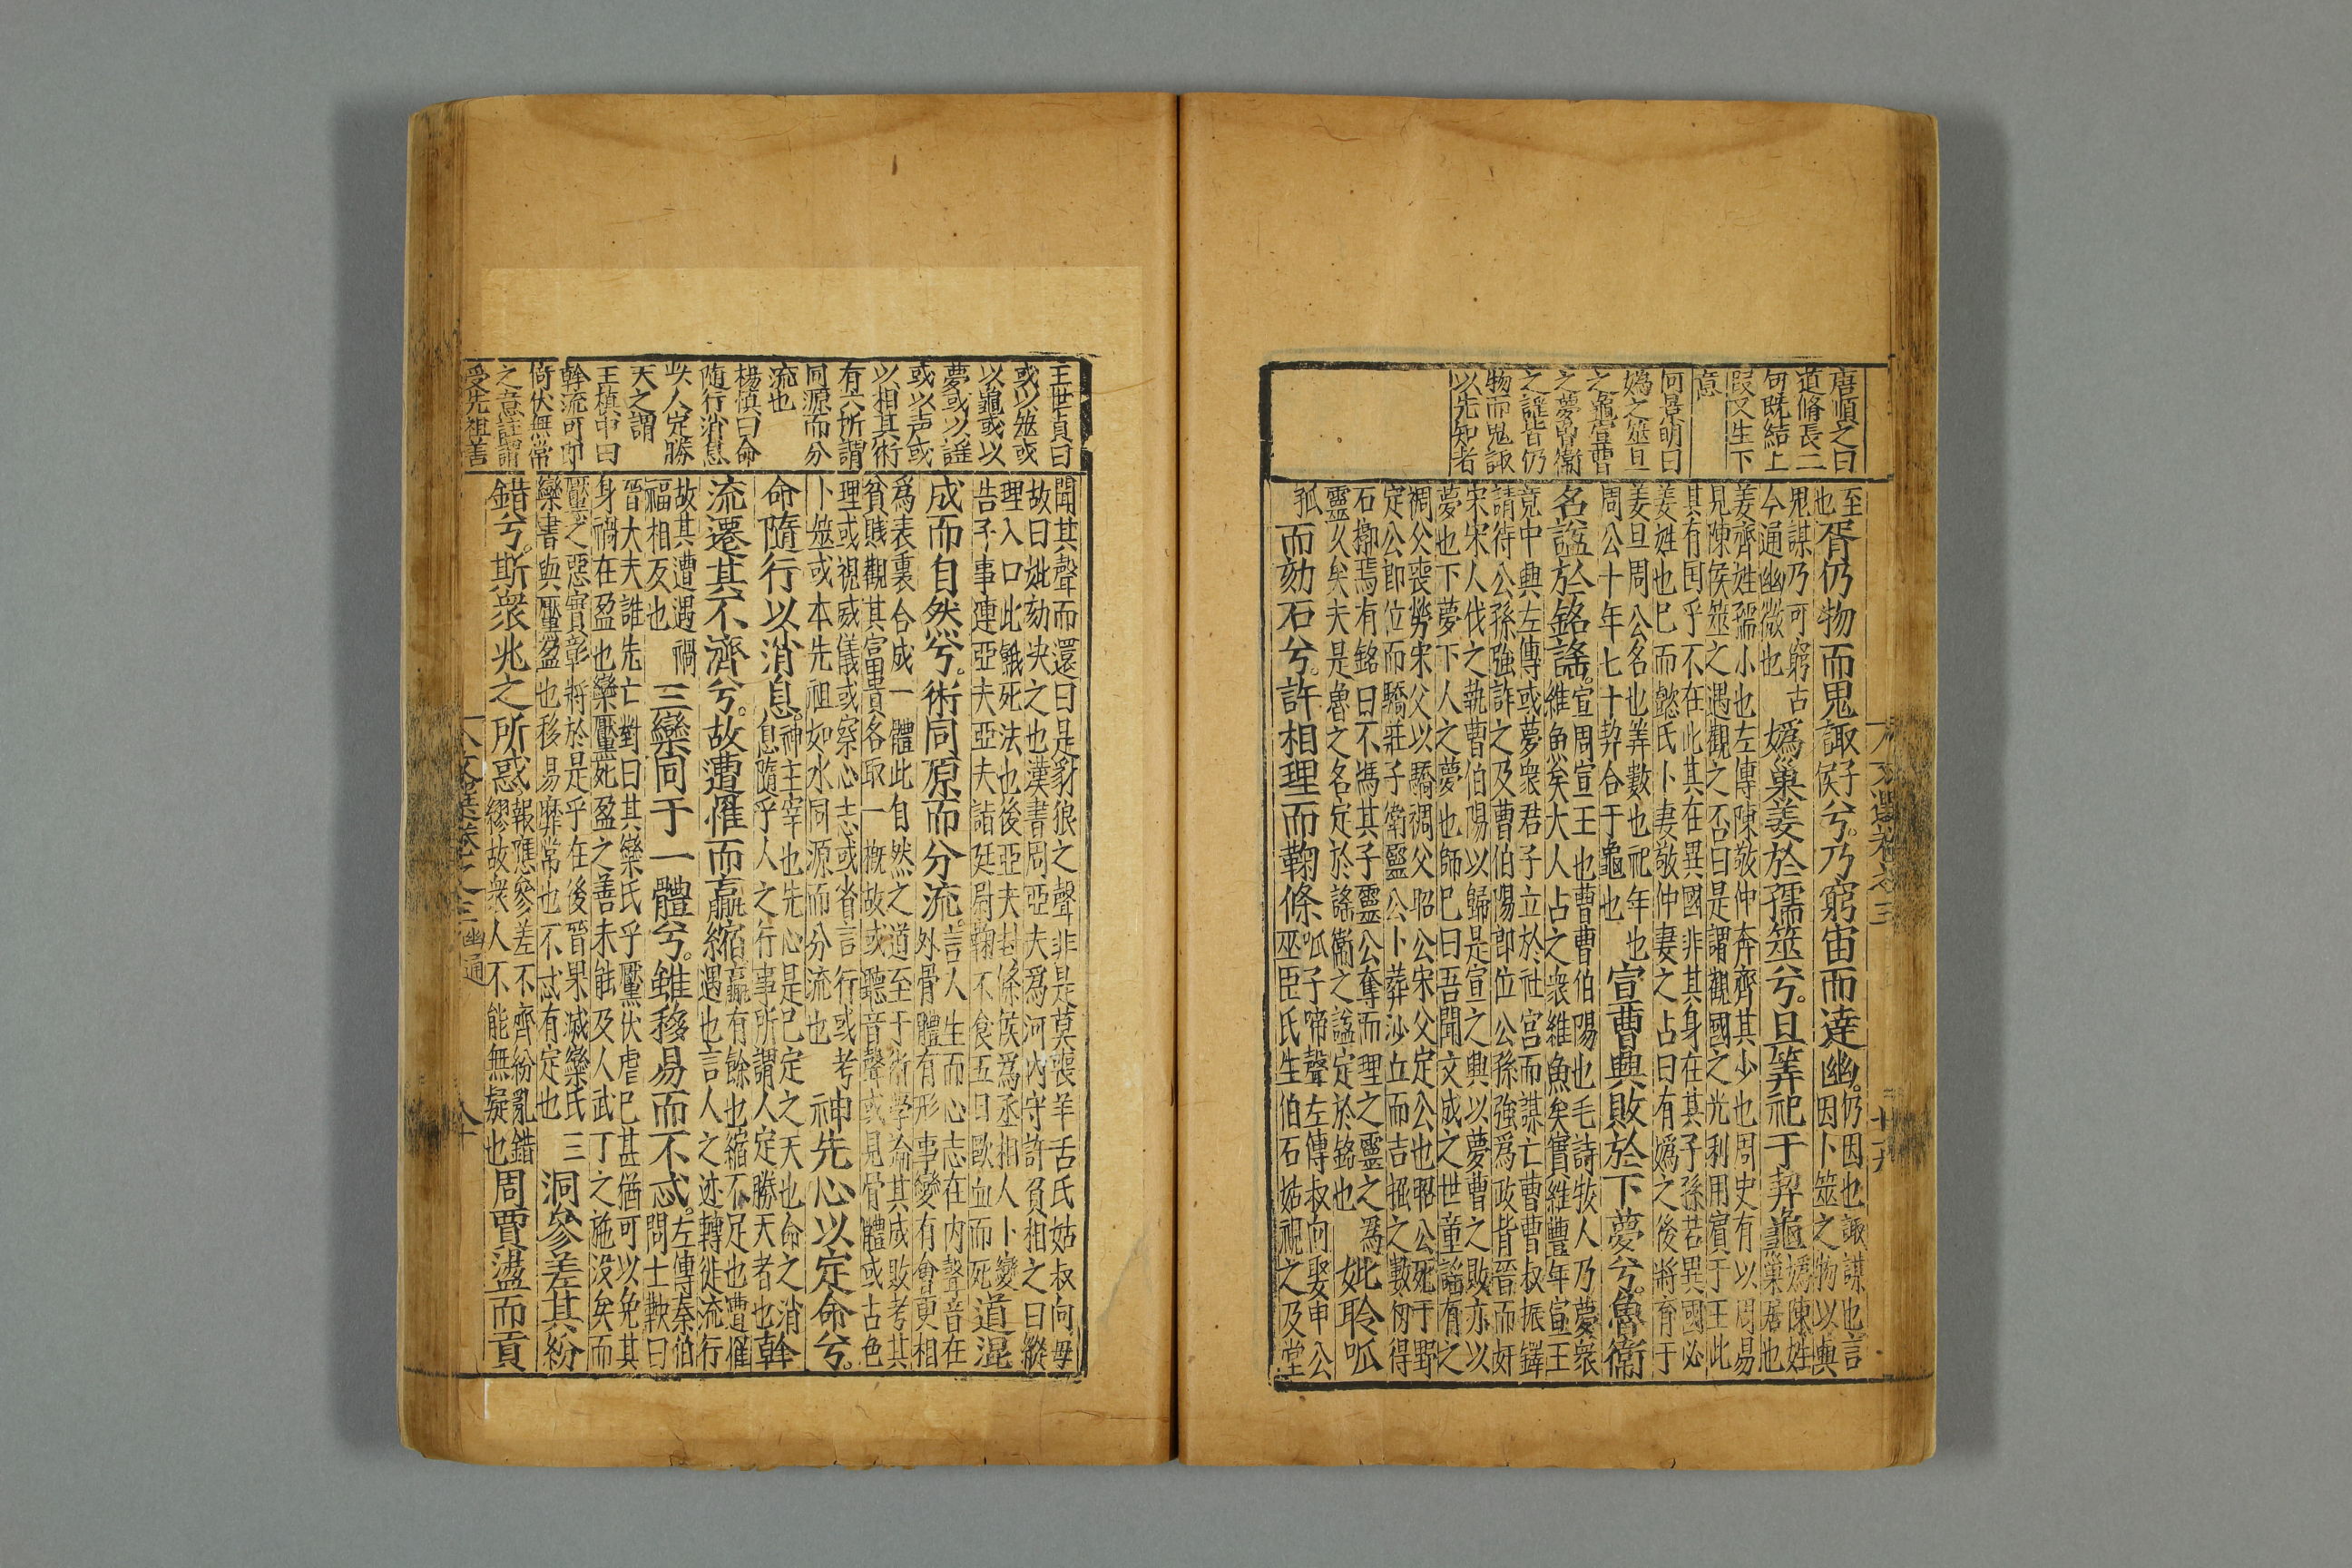 唐順之曰
道脩長二
句既結上
段又生下
意
何景明曰
媯之筮旦
之龜宣曹
之夢魯衛
之謡皆仍
物而鬼諏
以先知者
至
也
胥仍物而鬼諏兮。乃窮宙而達幽。
仍因也諏謀也言
因卜筮之物以與
鬼謀乃可窮古
今通幽微也
媯巢姜於孺筮兮。旦筭祀于挈龜
媯陳姓
巢居也
姜齊姓孺小也左傳陳敬仲奔齊其少也周史有以周易
見陳侯筮之遇觀之否曰是謂觀國之光利用賓于王此
其有国乎不在此其在異國非其身在其子孫若異國必
姜姓也巳而懿氏卜妻敬仲妻之占曰有媯之後將育于
姜旦周公名也筭數也祀年也
周公十年七十挈合于龜也
宣曹興敗於下夢兮。魯衛
名謚於銘謡。
宣周宣王也曹曹伯陽也毛詩牧人乃夢衆
維魚矣大人占之衆維魚矣實維豐年宣王
竟中興左傳或夢衆君子立於社宮而謀亡曹曹叔振鐸
請待公孫強許之及曹伯陽即位公孫強爲政皆晉而奸
宋宋人伐之執曹伯陽以歸是宣之興以夢曹之敗亦以
夢也下夢下人之夢也師巳曰吾聞文成之世童謡有之
裯父喪勞宋父以驕裯父昭公宋父定公也昭公死于野
定公即位而驕莊子衛靈公卜葬沙丘而吉掘之數仞得
石槨焉有銘曰不馮其子靈公奪而理之靈之爲
靈久矣夫是魯之名定於謡衛之謚定於銘也
妣聆呱
孤而劾石兮。許相理而鞠條
呱子啼聲左傳叔向娶申公
巫臣氏生伯石姑視之及堂
王世貞曰
或以筮或
以龜或以
夢或以謡
或以声或
以相其術
有六所謂
同源而分
流也
楊慎曰命
随行消息
此人定勝
天之謂
王慎中曰
幹流可即
倚伏無常
之意註謂
受先祖善
聞其聲而還曰是豺狼之聲非是莫喪羊舌氏姑叔向毋
故曰妣劾决之也漢書周亞夫爲河内守許負相之曰縱
理入口此餓死法也後亞夫封條侯爲丞相人卜變
告子事連亞夫亞夫詣廷尉鞫不食五日歐血而死
道混
成而自然兮。術同原而分流。
言人生而心志在内聲音在
外骨體有形事變有會更相
爲表裏合成一體此自然之道至于術學論其成敗考其
貧賤觀其富貴各取一概故或聽音聲或見骨體或古色
理或視威儀或察心志或省言行或考
卜筮或本先祖如水同源而分流也
神先心以定命兮。
命隨行以消息。
神主宰也先心是已定之天也命之消
息隨乎人之行事所謂人定勝天者也
幹
流遷其不濟兮。故遭罹而嬴縮
嬴有餘也縮不足也遭罹
遇也言人之迹轉徙流行
故其遭遇禍
福相反也
三欒同于一體兮。雖移易而不忒。
左傳秦伯
問士鞅曰
晉大夫誰先亡對曰其欒氏乎黶伏虐巳甚猶可以免其
身禍在盈也欒黶死盈之善未能及人武丁之施没矣而
黶之惡實彰將於是乎在後晉果滅欒氏三
欒書與黶盈也移易弊常也不忒有定也
洞參差其紛
錯兮。斯衆兆之所惑
報應參差不齊紛亂錯
繆故衆人不能無疑也
周賈盪而貢
幽通